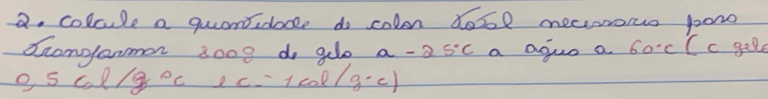 2. calcule a quantidade de calor total necessario para
transformar 300g de gelo a -25°C a água a 60°C (c gelo
0,5 cal/g °C e c = 1 cal/g·c)